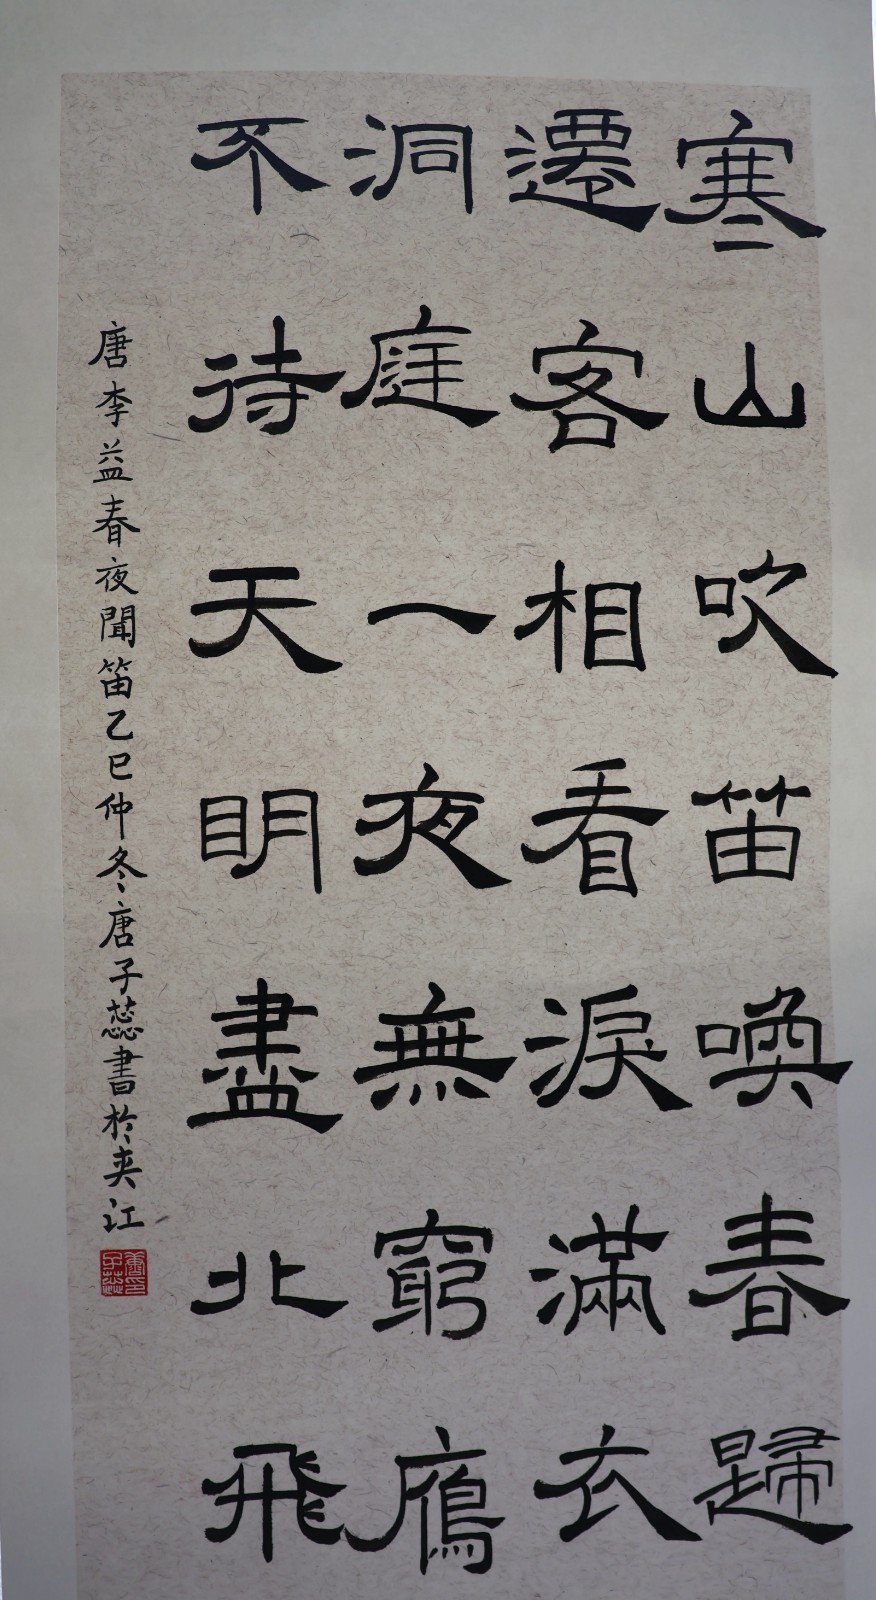 寒山吹笛喚春歸
遷客相看淚滿衣
洞庭一夜無窮鴈
不待天明盡北飛
唐李益春夜聞笛乙巳仲冬唐子蕊書於夾江
唐子蕊印